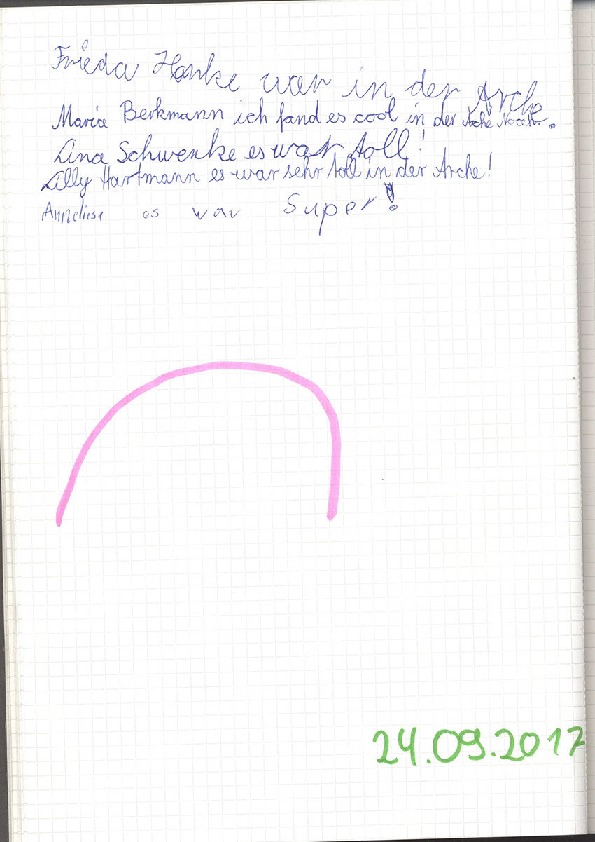 Frieda Hanke war in der Arche
Maria Berkmann ich fand es cool in der Arche
Lina Schwenke es war toll!
Lilly Hartmann es war sehr toll in der Arche!
Anneliese es war Super!
24.09.2017